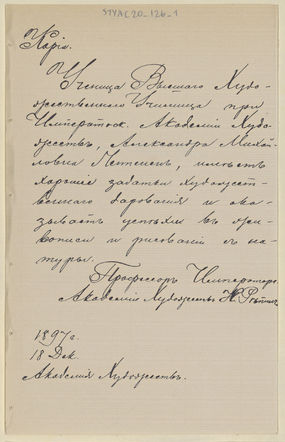 STYAC20-126-1
Копiя.
Ученица Высшаго Худо-
жественнаго Училища при
Императоск. Академiи Худо-
жествъ, Александра Михай-
ловна имѣетъ
хорошiе задатки художест-
веннаго дарованiя и ока-
зываетъ успѣхи въ жи-
вописи и рисованiи съ на-
туры.
Профессоръ Императорс.
Академiи Художествъ И. Рѣпинъ.
1897 г.
18 Дек.
Академiя Художествъ.